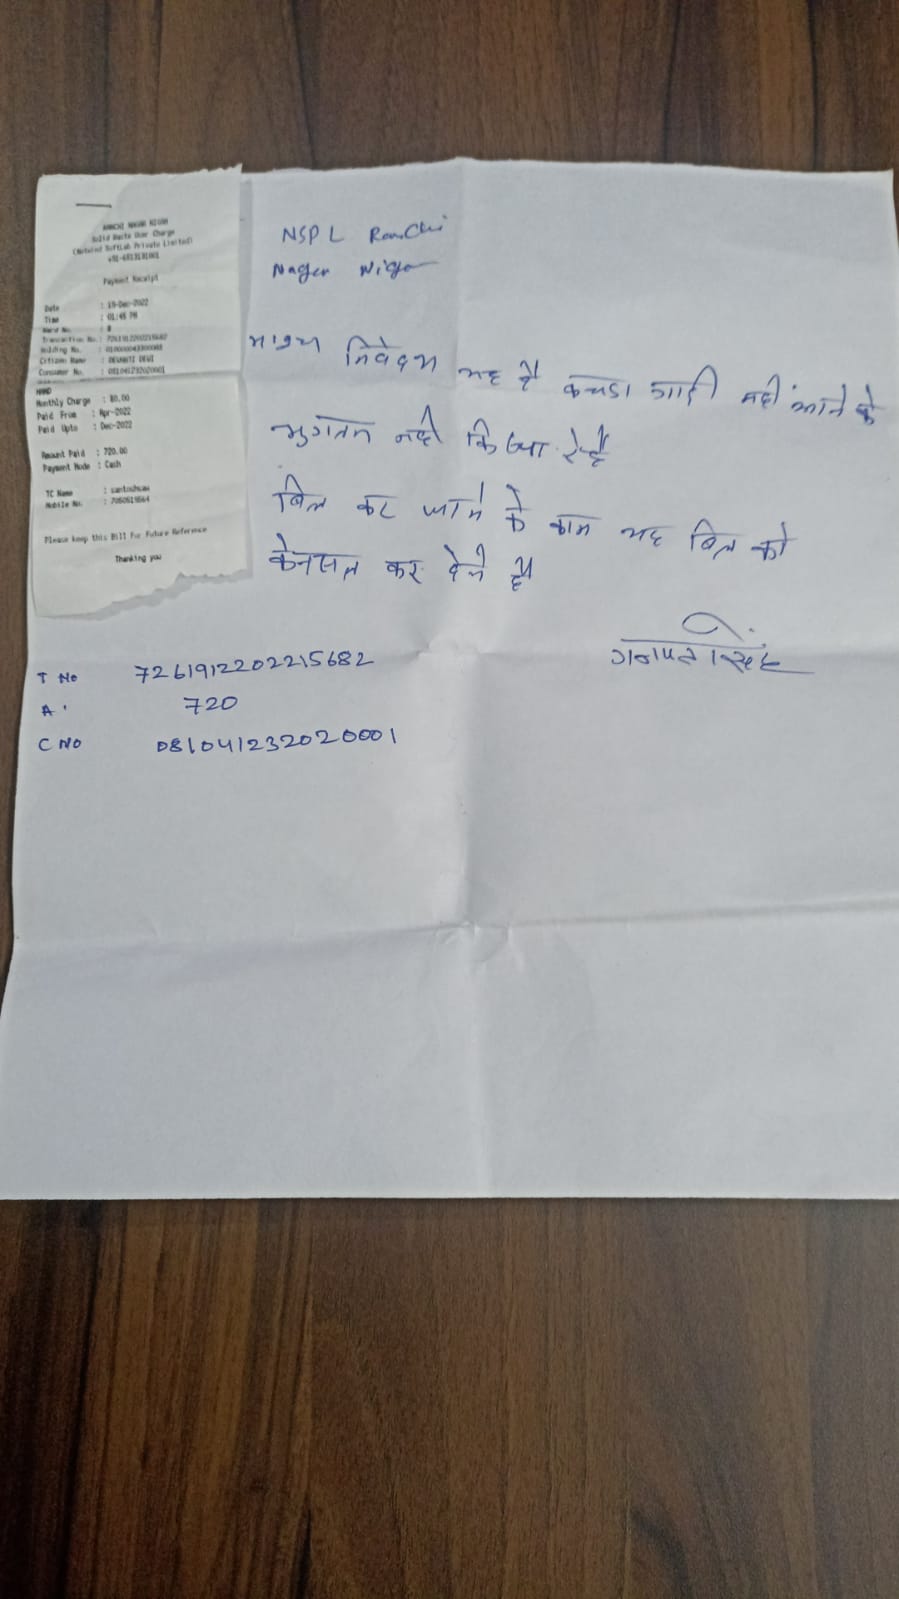 RANCHI NAGAR NIGAM
Solid Waste User Charge
(Netwind Softlab Private Limited)
Payment Receipt
Date : 19-Dec-2022
Time : 01:45 PM
Ward No. : 8
Transaction No.: 7261912202215682
Holding No. :
Citizen Name : DEWANTI DEVI
Consumer No. : 081041232020001
Monthly Charge : 80.00
Paid From : Apr-2022
Paid Upto : Dec-2022
Amount Paid : 720.00
Payment Mode : Cash
TC Name :
Mobile No. :
Please keep this Bill For Future Reference
Thanking you
NSPL Ranchi
Nager
निवेदन यह है कचडा गाडी नही आने के
भुगतन नही
बिल कट जाने के यह बिल को
केनसल कर देने है
T No 7261912202215682
A' 720
C NO 081041232020001